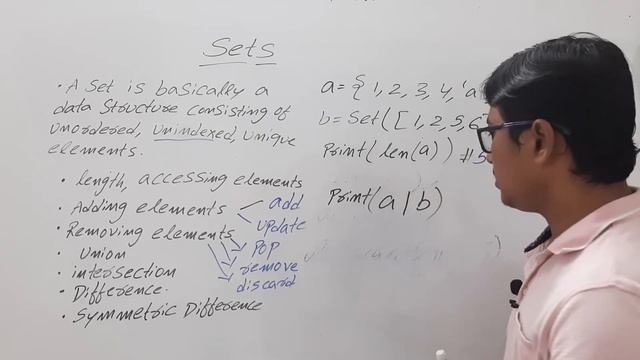 Sets
• A set is basically a
data structure consisting of
unordered, unindexed, unique
elements.
• length, accessing elements
• Adding elements
add
update
• Removing elements
pop
remove
discard
• Union
• intersection
• Difference.
• Symmetric Difference
a = { 1, 2, 3, 4, 'a
b = Set([ 1, 2, 5, 6
Print(len(a)) # 5
Print(a | b)